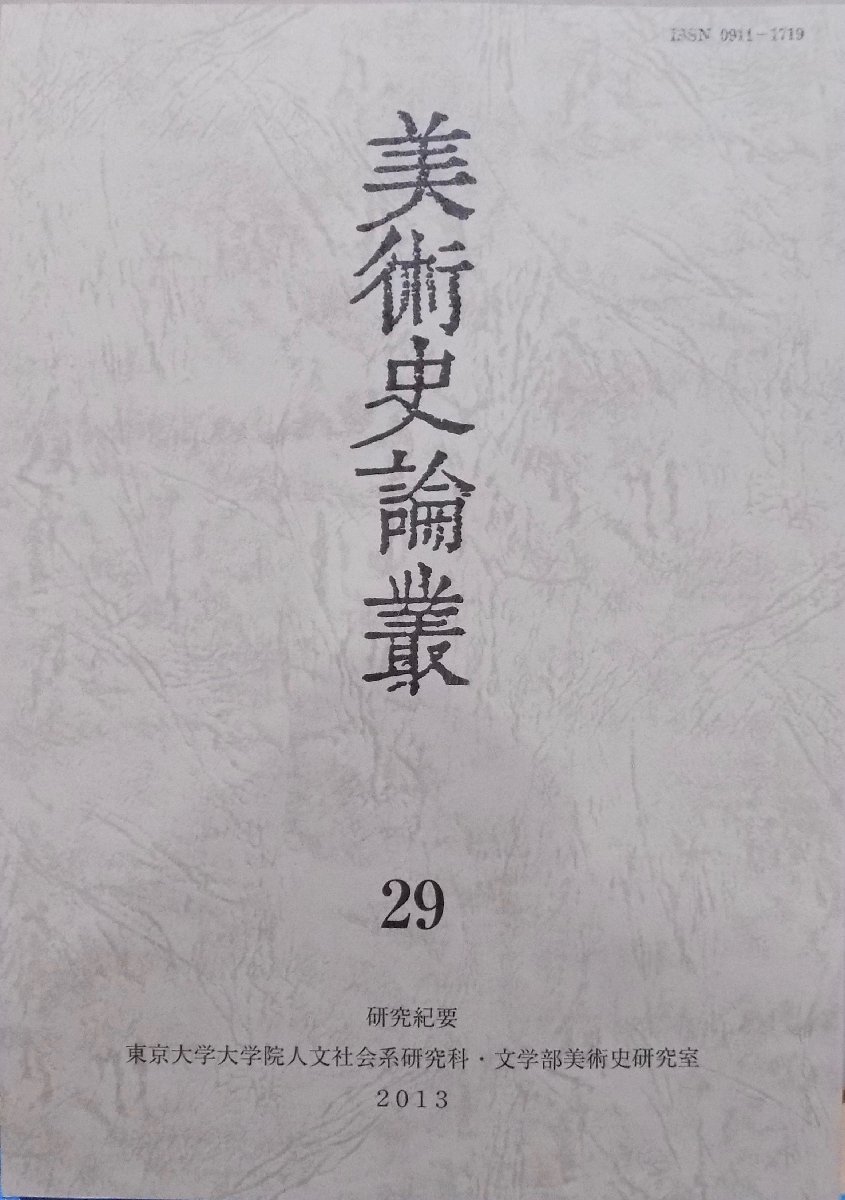 ISSN 0911-1719
美術史論叢
29
研究紀要
東京大学大学院人文社会系研究科・文学部美術史研究室
2013